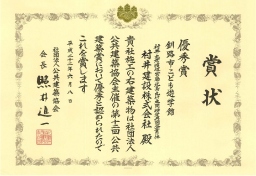 賞状
優秀賞
釧路市こども遊学館
村井建設株式会社 殿
貴社施工の右建築物は社団法人
公共建築協会主催の第十二回公共
建築賞において優秀と認められたので
これを賞します
平成二十二年六月 日
社団法人公共建築協会
会長 照井進一